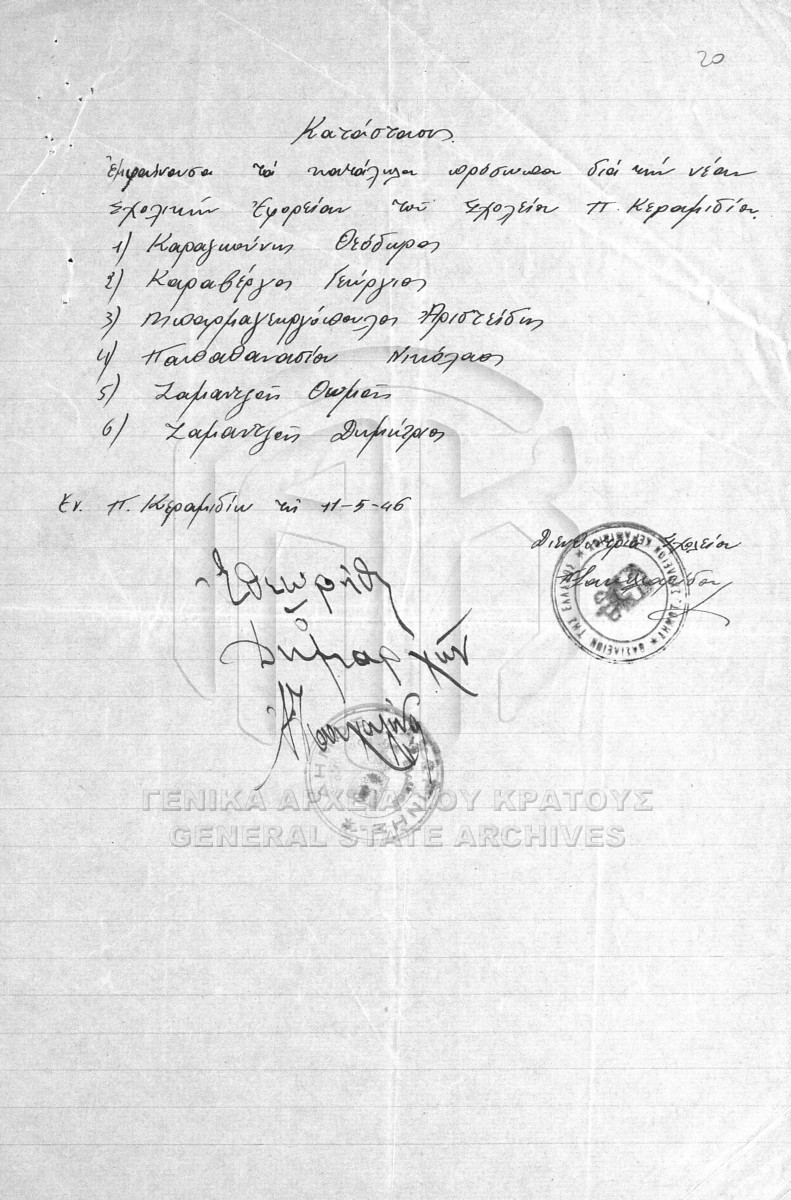 20
Κατάστασις
Ἐμφαίνουσα τά κατάληλα πρόσωπα διά τήν νέαν
Σχολικήν Ἐφορείαν τοῦ Σχολείου Π. Κεραμιδίου.
1) Καραγκούνης Θεόδωρος
2) Καραβέργος Γεώργιος
3) Μπαρμαγεωργόπουλος Ἀριστείδης
4) Παπαθανασίου Νικόλαος
5) Σαμαντζῆς Θωμᾶς
6) Σαμαντζῆς Δημήτριος
Ἐν Π. Κεραμιδίῳ τῇ 11-5-46
Διευθύντρια Σχολείου
Ἐθεωρήθη
Ὁ
Δήμαρχος
ΒΑΣΙΛΕΙΟΝ ΤΗΣ ΕΛΛΑΔΟΣ
ΓΕΝΙΚΑ ΑΡΧΕΙΑ ΤΟΥ ΚΡΑΤΟΥΣ
GENERAL STATE ARCHIVES